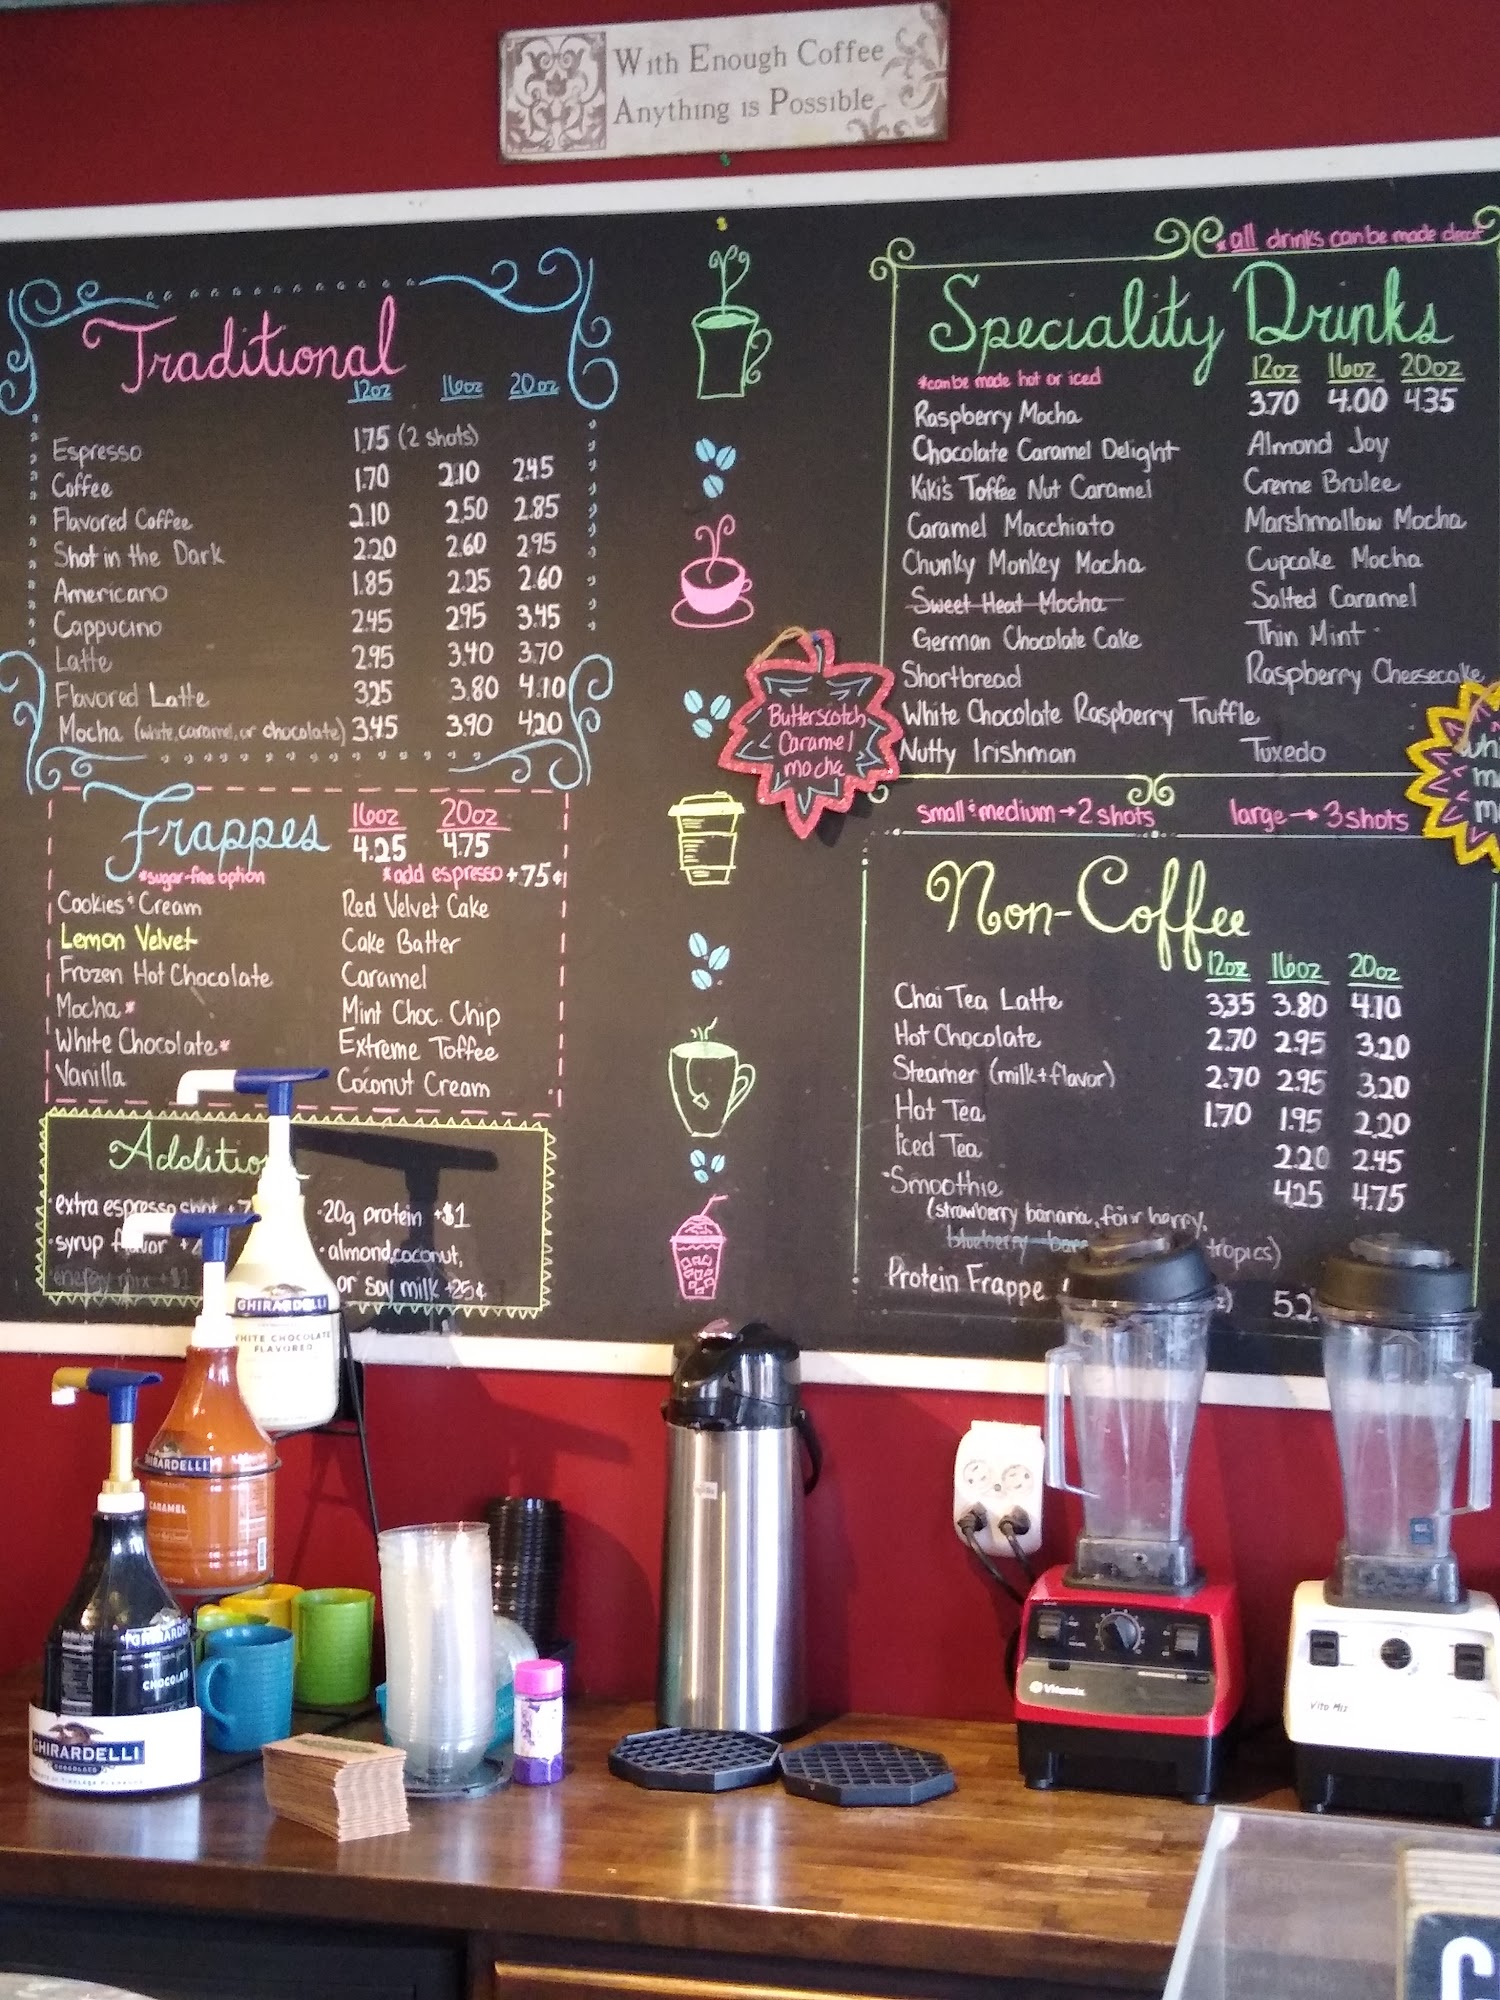 With Enough Coffee
Anything is Possible
*all drinks can be made decaf
Traditional
12oz 16oz 20oz
Espresso 1.75 (2 shots)
Coffee 1.70 2.10 2.45
Flavored Coffee 2.10 2.50 2.85
Shot in the Dark 2.20 2.60 2.95
Americano 1.85 2.25 2.60
Cappucino 2.45 2.95 3.45
Latte 2.95 3.40 3.70
Flavored Latte 3.25 3.80 4.10
Mocha (white, caramel, or chocolate) 3.45 3.90 4.20
Frappes 16oz 20oz
4.25 4.75
*sugar-free option *add espresso +75¢
Cookies & Cream Red Velvet Cake
Lemon Velvet Cake Batter
Frozen Hot Chocolate Caramel
Mocha* Mint Choc. Chip
White Chocolate* Extreme Toffee
Vanilla Coconut Cream
Additio
extra espresso shot +7 •20g protein +$1
•syrup flavor + •almond, coconut,
energy mix +$1 or soy milk +25¢
Butterscotch
Caramel
mocha
Speciality Drinks
*can be made hot or iced 12oz 16oz 20oz
Raspberry Mocha 3.70 4.00 4.35
Chocolate Caramel Delight Almond Joy
Kiki's Toffee Nut Caramel Creme Brulee
Caramel Macchiato Marshmallow Mocha
Chunky Monkey Mocha Cupcake Mocha
Sweet Heat Mocha Salted Caramel
German Chocolate Cake Thin Mint
Shortbread Raspberry Cheesecake
White Chocolate Raspberry Truffle
Nutty Irishman Tuxedo
small & medium → 2 shots large → 3 shots
Non-Coffee
12oz 16oz 20oz
Chai Tea Latte 3.35 3.80 4.10
Hot Chocolate 2.70 2.95 3.20
Steamer (milk + flavor) 2.70 2.95 3.20
Hot Tea 1.70 1.95 2.20
Iced Tea 2.20 2.45
•Smoothie 4.25 4.75
(strawberry banana, four berry,
blueberry tropics)
Protein Frappe 5.2
GHIRARDELLI
WHITE CHOCOLATE
FLAVORED
GHIRARDELLI
CARAMEL
GHIRARDELLI
CHOCOLATE
GHIRARDELLI
CHOCOLATE
Vitamix
Vita Mix